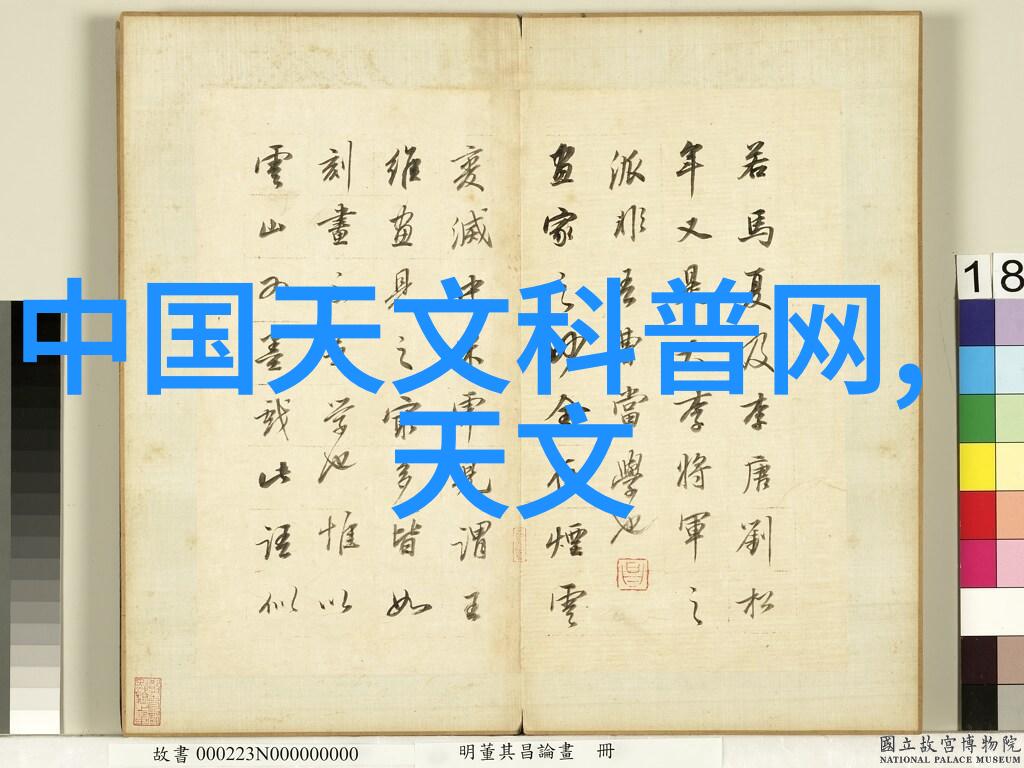 中国天文科普网,
天文
若馬夏及李唐劉松
年又是大李將軍之
派非吾曹當學也
畫家之妙全在煙雲
變滅中米虎兒謂王
維畫見之最多皆如
刻畫學也惟以
雲山為墨戲此語似
18
故書 000223N000000000
明董其昌論畫 冊
國立故宮博物院
NATIONAL PALACE MUSEUM